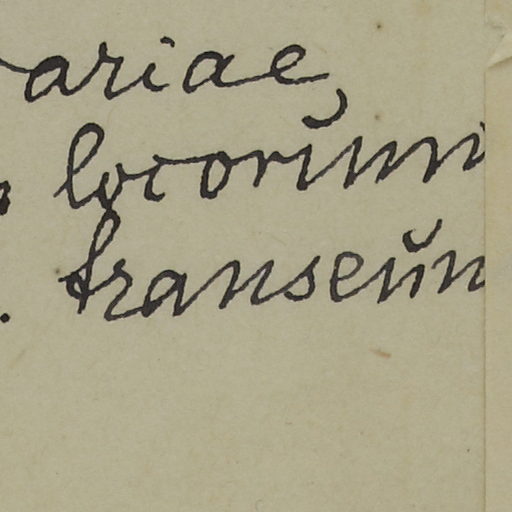 ariae,
locorum
transeun